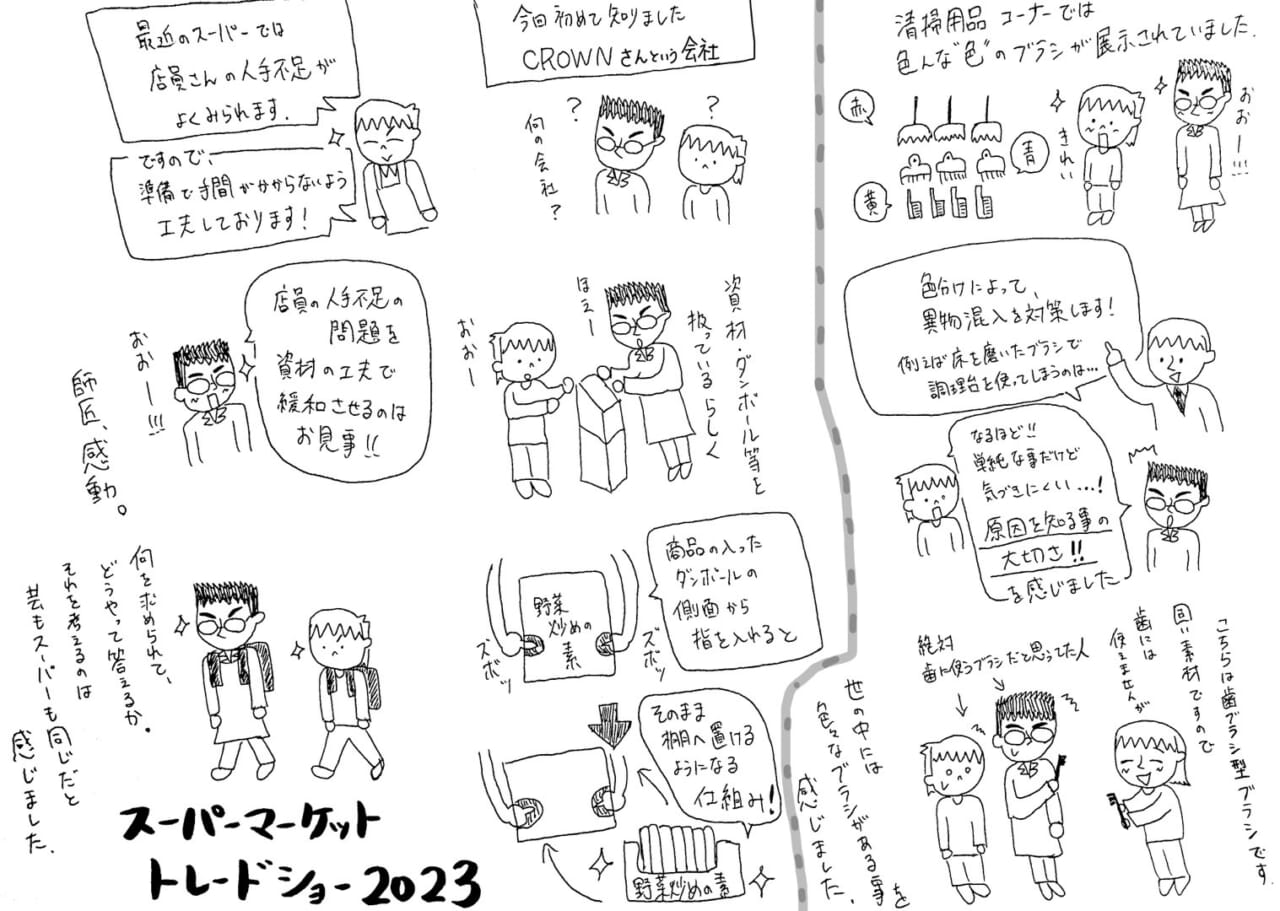 清掃用品コーナーでは
色んな“色”のブラシが展示されていました.
赤
青
黄
きれい
おおー!!!
色分けによって、
異物混入を対策します!
例えば床を磨いたブラシで
調理台を使ってしまうのは…
なるほど!!
単純な事だけど
気づきにくい…!
原因を知る事の
大切さ!!
を感じました
こちらは歯ブラシ型ブラシです.
同い素材ですので
歯には
使えませんが
絶対
歯に使うブラシだと思ってた人
世の中には
色々なブラシがある事を
感じました.
今回初めて知りました
CROWNさんという会社
?
?
何の会社?
資材・ダンボール等を
扱っているらしく
ほえー
おおー
商品の入った
ダンボールの
側面から
指を入れると
野菜
炒めの
素
ズボッ
ズボッ
そのまま
棚へ置ける
ようになる
仕組み!
野菜炒めの素
最近のスーパーでは
店員さんの人手不足が
よくみられます.
ですので、
準備で手間がかからないよう
工夫しております!
店員の人手不足の
問題を
資材の工夫で
緩和させるのは
お見事!!
おおー!!!
師匠、感動。
何を求められて、
どうやって答えるか。
それを考えるのは
芸もスーパーも同じだと
感じました.
スーパーマーケット
トレードショー2023